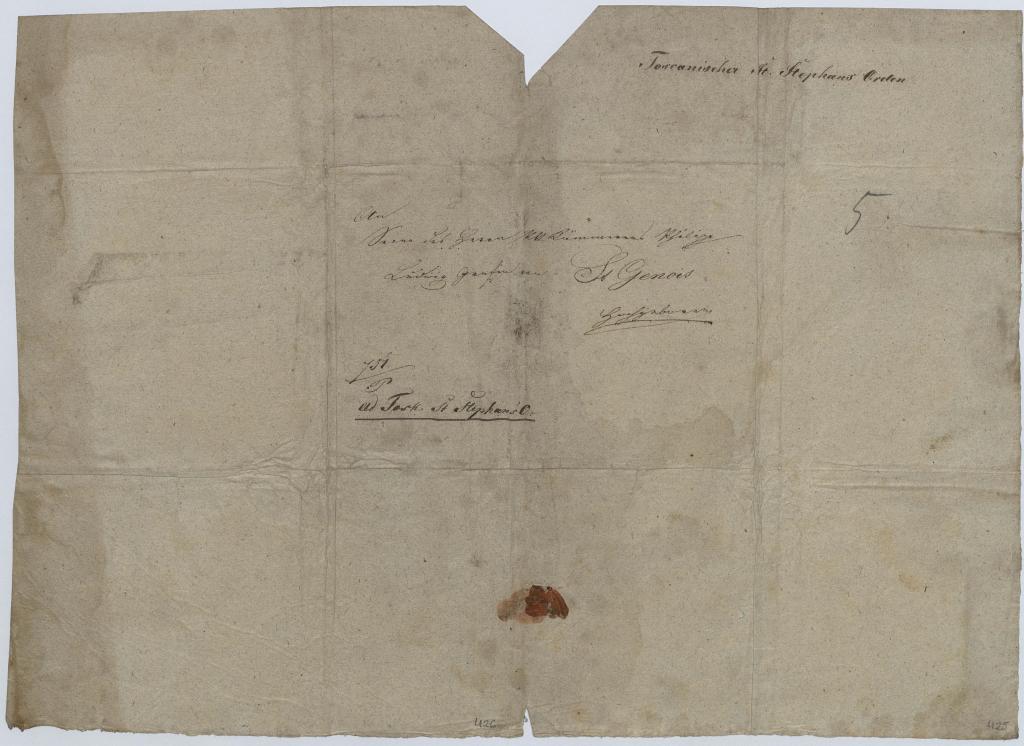 Toscanischer St. Stephans Orden
5
An
Seine des Herrn K K Kämmerers Philipp
Ludwig Grafen von St Genois
Hochgeboren
751
P
ad Tosk. St Stephans O.
426
425